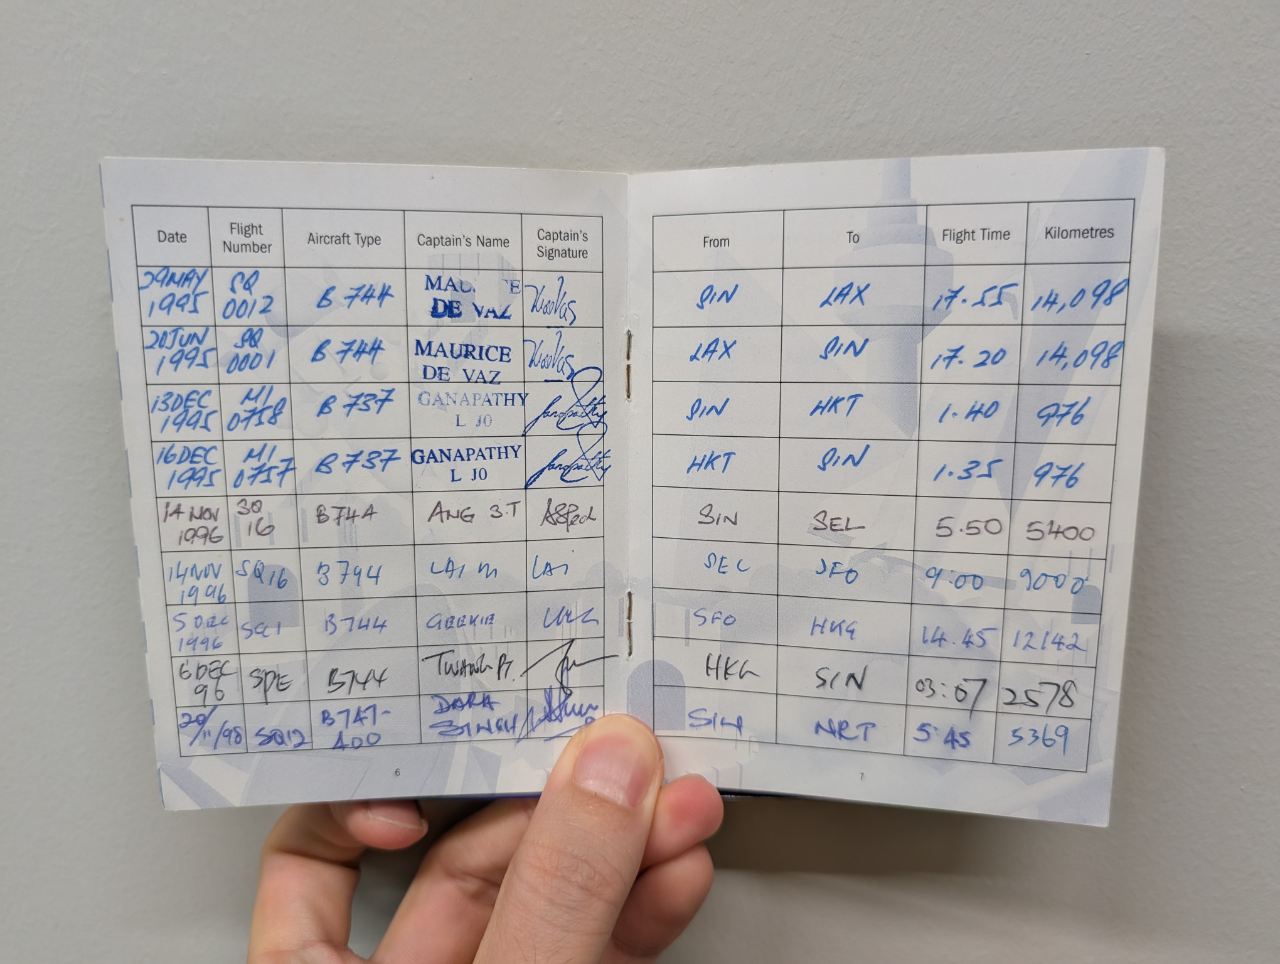 Date Flight Number Aircraft Type Captain's Name Captain's Signature From To Flight Time Kilometres
29MAY 1995 SQ 0012 B 744 MAU  E DE VAZ SIN LAX 17.55 14,098
20JUN 1995 SQ 0001 B 744 MAURICE DE VAZ LAX SIN 17.20 14,098
13DEC 1995 MI 0758 B 737 GANAPATHY L JO SIN HKT 1.40 976
16DEC 1995 MI 0757 B 737 GANAPATHY L JO HKT SIN 1.35 976
14 NOV 1996 SQ 16 B744 ANG S.T SIN SEL 5.50 5400
14NOV 1996 SQ16 B744 LAI M LAI SEL SFO 9:00 9000
5 DEC 1996 SQ1 B744 GEEKIE SFO HKG 14.45 12142
6 DEC 96 B744 HKG SIN 03:07 2578
20/11/98 SQ12 B747-400 DARA SINGH SIN NRT 5:45 5369
6 7